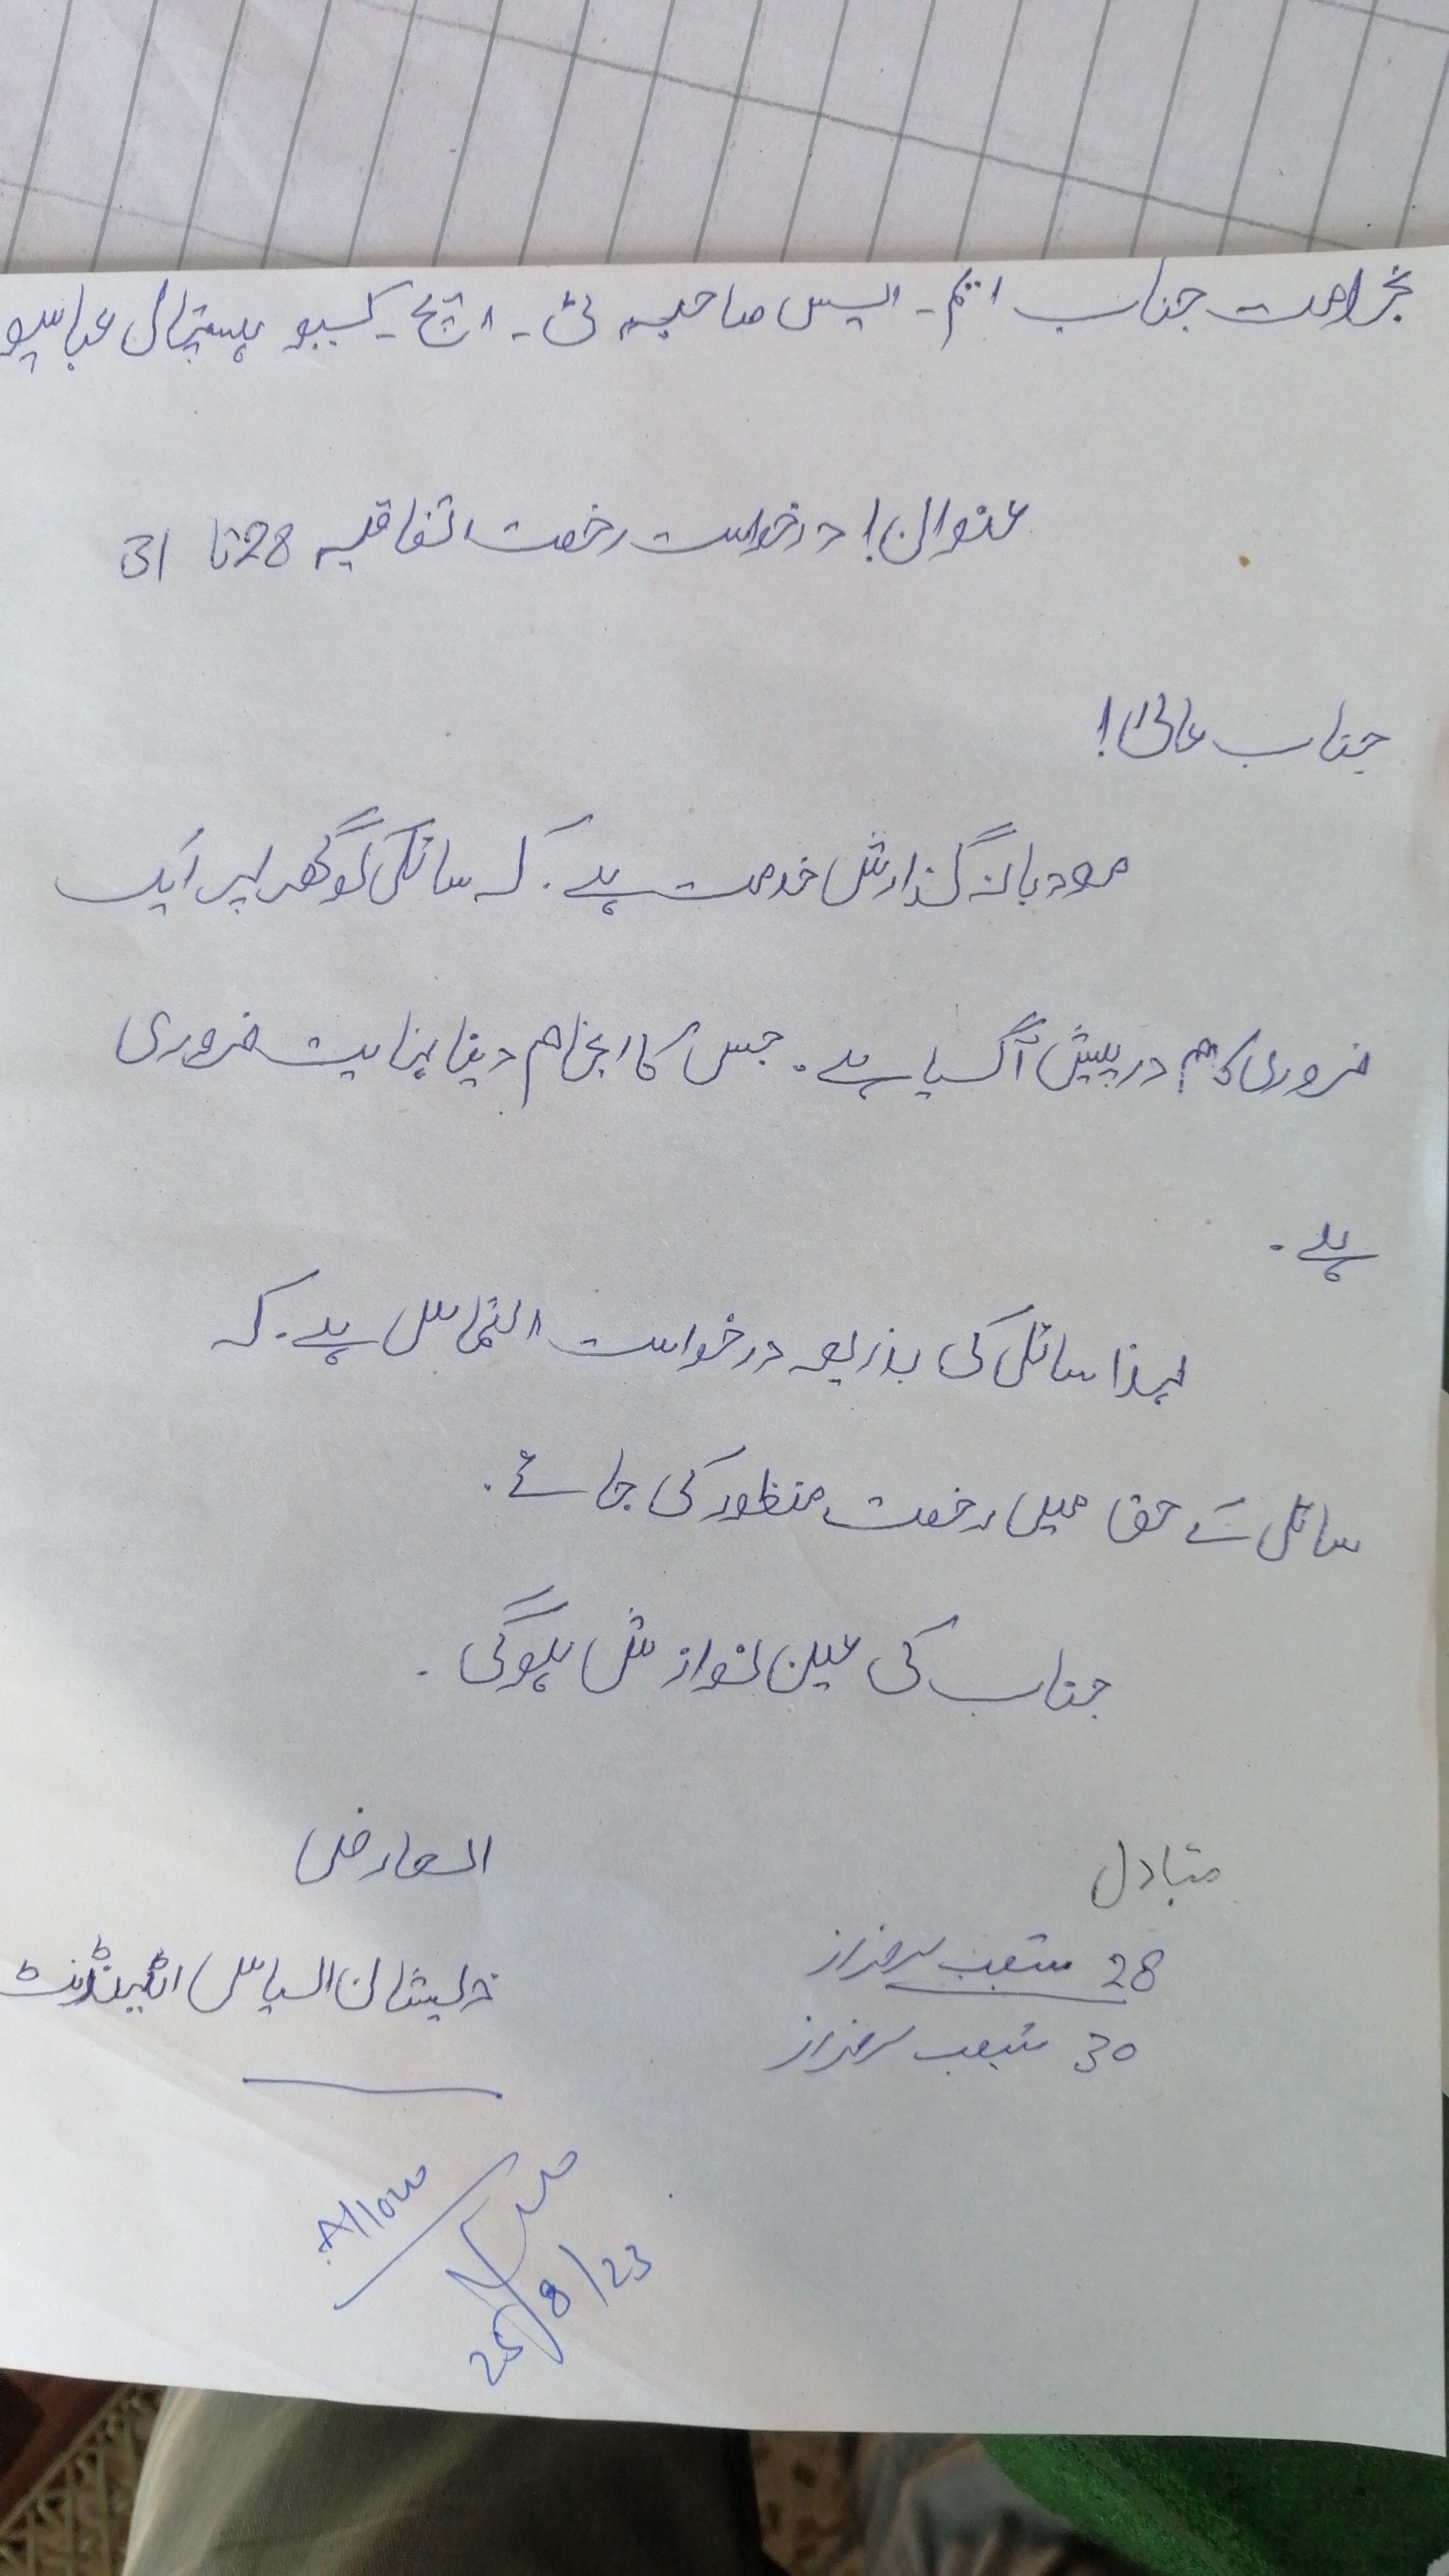 بخدامت جناب ایم۔ ایس صاحب ٹی۔ ایچ۔ کیبو ہسپتال عباسپو
عنوان! درخواست رخصت اتفاقیہ 28 تا 31
جناب عالیٰ!
مودبانہ گذارش خدمت ہے۔ کہ سائل کو گھر پر ایک
ضروری کام درپیش آ گیا ہے۔ جس کا انجام دینا نہایت ضروری
ہے۔
لہذا سائل کی بذریعہ درخواست التماس ہے۔ کہ
سائل کے حق میں رخصت منظور کی جائے۔
جناب کی عین نوازش ہوگی۔
العارض
ذیشان الیاس اٹینڈنٹ
متبادل
28 شعیب سرفراز
30 شعیب سرفراز
Allow
25/8/23